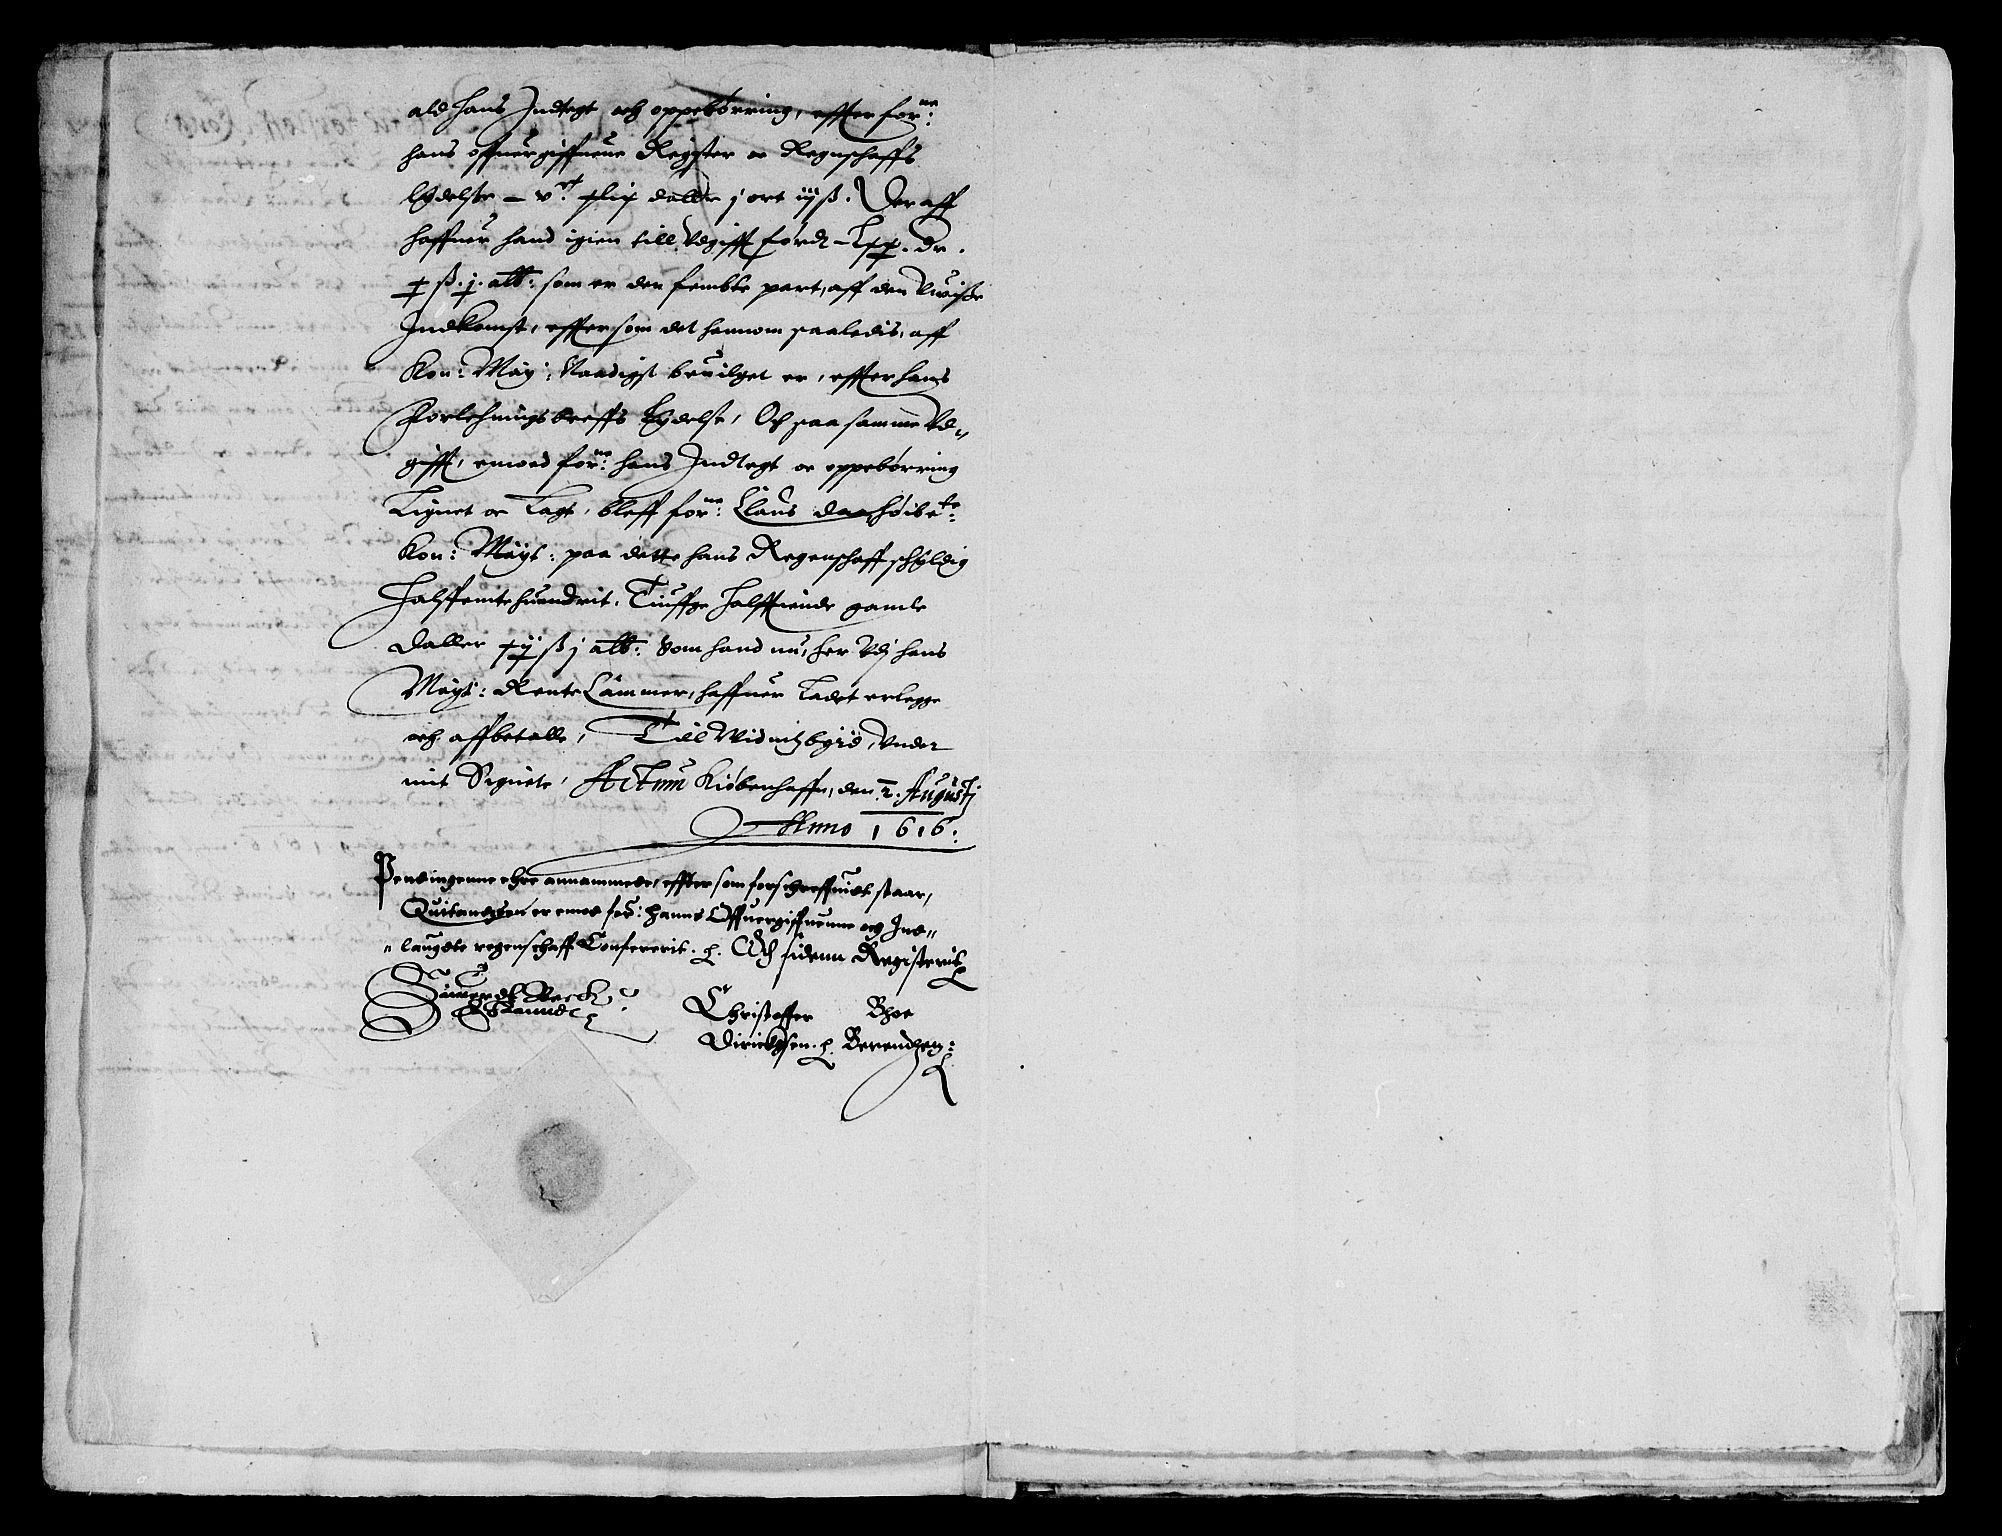 ald hans Indtegt och oppebørring, effter for:ne
hans offuergiffuene Register oc Regnschaffs
lydelse – v.ct xlix daller j ort iij ß. Der aff
haffuer hand igien till Vdgifft førdt – Lxx. dr.
x ß. j. alb: som er den fembte part, aff den Vuisse
Indkomst, effter som det hannom saaledis, aff
Kon: May: Naadigst beuilget er, effter hans
Forlehnings breffs Lydelse, Och paa samme Vd„
gifft, emoed for:ne hans Indtegt oc oppebørring
Lignet oc Lagt, bleff for:ne Claus daa høibe:te
Kon: Mayt: paa dette hans Regenschaff schyldig
Halffemtehuundrit. Tiuffge halffniende gamle
Daller xij ß j alb: Som hand nu, her Vdj hans
Mayt: Rente Cammer, haffuer Ladet erlegge
och affbetalle, Till Widnitzbyrd, Vnder
mit Signete, Actum Kiøbenhaffn, den 2. Augustj
Anno 1616.
Pendingenne ehre annammede, effter som forschreffuidt staar,
Quitandzen er emod for: hanns Offuergiffuenne och Ind„
„laugdte regenschaff Confererit. Och sidenn Registerit
Siuerdt Beck
Christoffer Bhoe
Dirichsen. Berendzen: